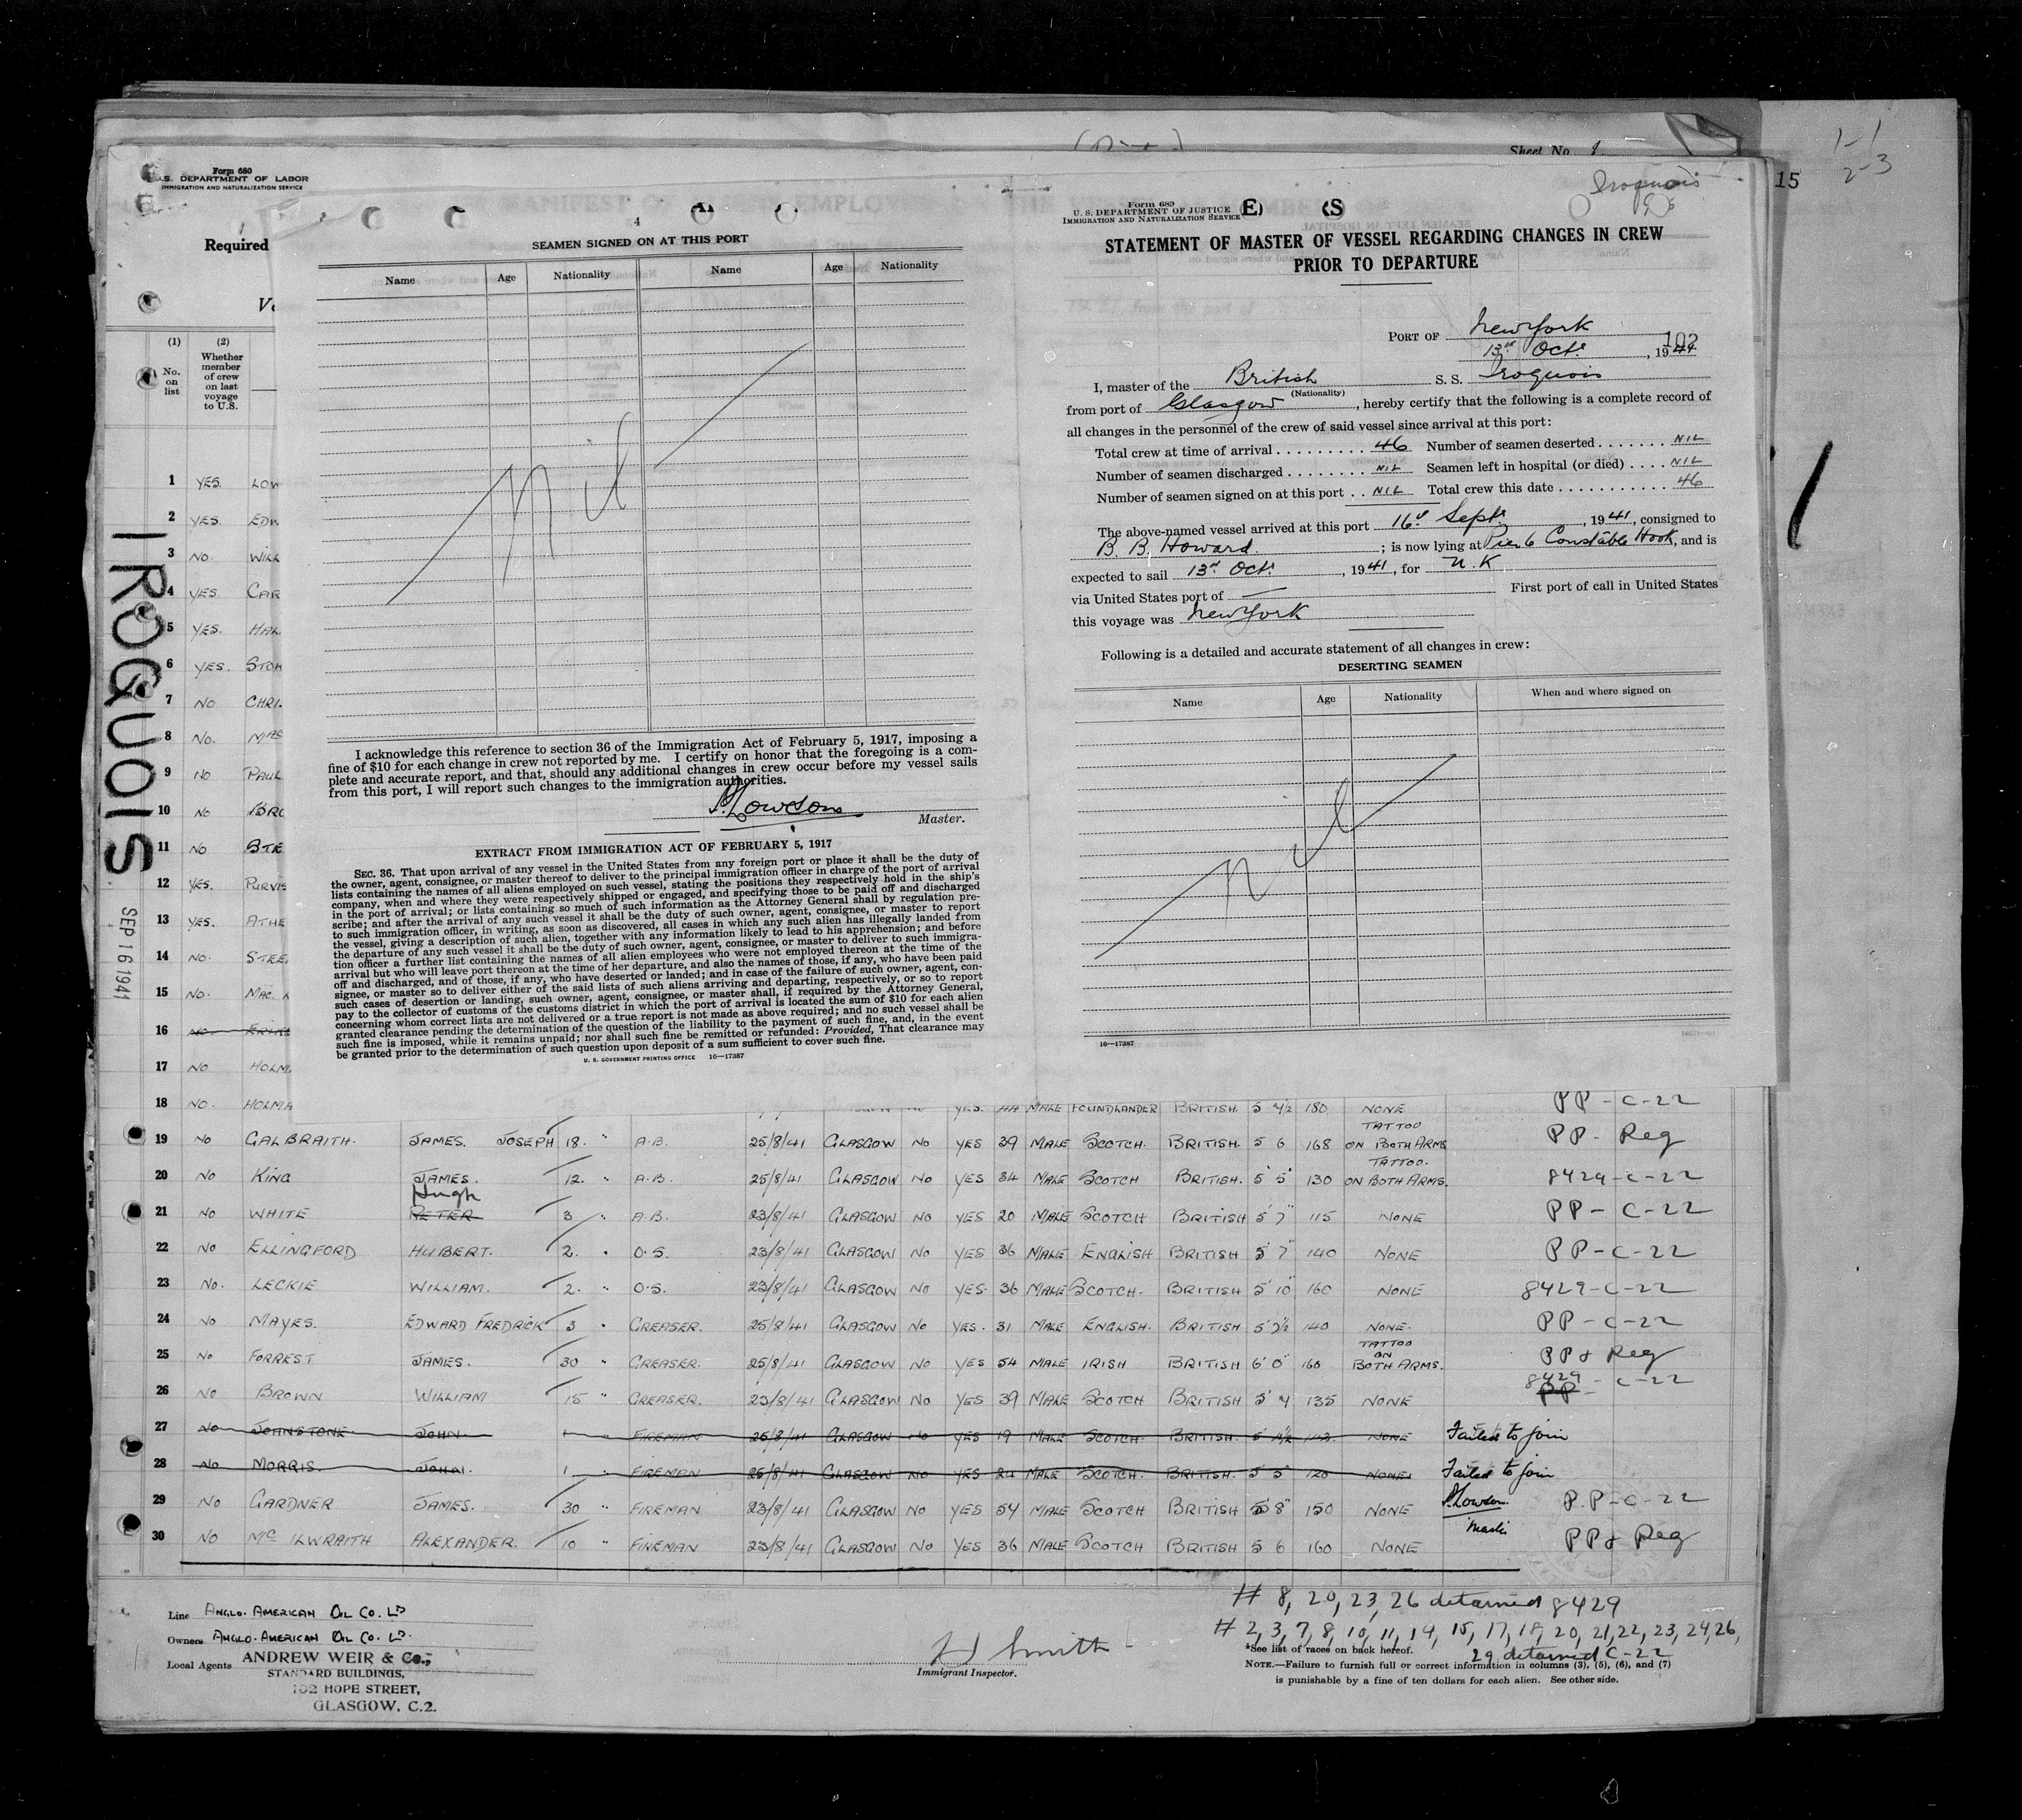 Sheet No. 1
1-1
2-3
15
Form 680
U.S. DEPARTMENT OF LABOR
IMMIGRATION AND NATURALIZATION SERVICE
Required
(1)
No. on list
(2)
Whether member of crew on last voyage to U.S.
IROQUOIS
SEP 16 1941
1 YES. LOW
2 YES. EDW
3 NO. WILL
4 YES. CAR
5 YES. HAL
6 YES. STOK
7 NO CHRI
8 NO. MAC
9 NO PAUL
10 NO BRO
11 NO STE
12 YES. PURVIS
13 YES. ATHE
14 NO. STEE
15 NO. MAC
16 NO.
17 NO HOLM
18 NO. HOLMA
4
SEAMEN SIGNED ON AT THIS PORT
Name Age Nationality Name Age Nationality
Nil
I acknowledge this reference to section 36 of the Immigration Act of February 5, 1917, imposing a
fine of $10 for each change in crew not reported by me. I certify on honor that the foregoing is a com-
plete and accurate report, and that, should any additional changes in crew occur before my vessel sails
from this port, I will report such changes to the immigration authorities.
P. Lowson
Master.
EXTRACT FROM IMMIGRATION ACT OF FEBRUARY 5, 1917
SEC. 36. That upon arrival of any vessel in the United States from any foreign port or place it shall be the duty of
the owner, agent, consignee, or master thereof to deliver to the principal immigration officer in charge of the port of arrival
lists containing the names of all aliens employed on such vessel, stating the positions they respectively hold in the ship's
company, when and where they were respectively shipped or engaged, and specifying those to be paid off and discharged
in the port of arrival; or lists containing so much of such information as the Attorney General shall by regulation pre-
scribe; and after the arrival of any such vessel it shall be the duty of such owner, agent, consignee, or master to report
to such immigration officer, in writing, as soon as discovered, all cases in which any such alien has illegally landed from
the vessel, giving a description of such alien, together with any information likely to lead to his apprehension; and before
the departure of any such vessel it shall be the duty of such owner, agent, consignee, or master to deliver to such immigra-
tion officer a further list containing the names of all alien employees who were not employed thereon at the time of the
arrival but who will leave port thereon at the time of her departure, and also the names of those, if any, who have been paid
off and discharged, and of those, if any, who have deserted or landed; and in case of the failure of such owner, agent, con-
signee, or master so to deliver either of the said lists of such aliens arriving and departing, respectively, or so to report
such cases of desertion or landing, such owner, agent, consignee, or master shall, if required by the Attorney General,
pay to the collector of customs of the customs district in which the port of arrival is located the sum of $10 for each alien
concerning whom correct lists are not delivered or a true report is not made as above required; and no such vessel shall be
granted clearance pending the determination of the question of the liability to the payment of such fine, and, in the event
such fine is imposed, while it remains unpaid; nor shall such fine be remitted or refunded: Provided, That clearance may
be granted prior to the determination of such question upon deposit of a sum sufficient to cover such fine.
U. S. GOVERNMENT PRINTING OFFICE 16—17387
Iroquois
Form 689
U. S. DEPARTMENT OF JUSTICE
IMMIGRATION AND NATURALIZATION SERVICE
STATEMENT OF MASTER OF VESSEL REGARDING CHANGES IN CREW
PRIOR TO DEPARTURE
PORT OF New York
13th Oct., 1941
I, master of the British S. S. Iroquois
(Nationality)
from port of Glasgow, hereby certify that the following is a complete record of
all changes in the personnel of the crew of said vessel since arrival at this port:
Total crew at time of arrival 46 Number of seamen deserted NIL
Number of seamen discharged NIL Seamen left in hospital (or died) NIL
Number of seamen signed on at this port NIL Total crew this date 46
The above-named vessel arrived at this port 16th Sept., 1941, consigned to
B. B. Howard; is now lying at Pier 6 Constable Hook, and is
expected to sail 13th Oct., 1941, for U.K
via United States port of — First port of call in United States
this voyage was New York
Following is a detailed and accurate statement of all changes in crew:
DESERTING SEAMEN
Name Age Nationality When and where signed on
Nil
16—17387
YES. 44 MALE FOUNDLANDER BRITISH. 5 4½ 180 NONE PP - C-22
19 NO GALBRAITH. JAMES. JOSEPH 18. " A.B. 25/8/41 GLASGOW NO YES 39 MALE SCOTCH. BRITISH. 5 6 168 TATTOO ON BOTH ARMS PP- Reg
20 NO KING JAMES. 12. " A.B. 25/8/41 GLASGOW NO YES 34 MALE SCOTCH BRITISH. 5 5 130 TATTOO. ON BOTH ARMS. 8429-C-22
21 NO WHITE Hugh PETER 3 " A.B. 23/8/41 GLASGOW NO YES 20 MALE SCOTCH BRITISH 5' 7" 115 NONE PP- C-22
22 NO ELLINGFORD HUBERT. 2. " O.S. 23/8/41 GLASGOW NO YES 36 MALE ENGLISH BRITISH 5' 7" 140 NONE PP-C-22
23 NO. LECKIE WILLIAM. 2. " O.S. 23/8/41 GLASGOW NO YES. 36 MALE SCOTCH. BRITISH 5' 10" 160 NONE 8429-C-22
24 NO MAYES. EDWARD FREDRICK 3 " GREASER. 25/8/41 GLASGOW NO YES. 31 MALE ENGLISH. BRITISH 5' 7½ 140 NONE. PP-C-22
25 NO FORREST JAMES. 30 " GREASER. 25/8/41 GLASGOW NO YES 54 MALE IRISH BRITISH 6' 0" 160 TATTOO ON BOTH ARMS. PP & Reg
26 NO BROWN WILLIAM 15 " GREASER. 23/8/41 GLASGOW NO YES 39 MALE SCOTCH BRITISH 5' 4 135 NONE 8429 PP- C-22
27 NO JOHNSTONE JOHN. 1 " FIREMAN 25/8/41 GLASGOW NO YES 19 MALE SCOTCH. BRITISH. NONE Failed to join
28 NO MORRIS. JOHN. 1 " FIREMAN 25/8/41 GLASGOW NO YES 24 MALE SCOTCH. BRITISH. 5 5 120 NONE Failed to join
29 NO GARDNER JAMES. 30 " FIREMAN 23/8/41 GLASGOW NO YES 54 MALE SCOTCH BRITISH 5' 8" 150 NONE P. Lowson P.P-C-22
30 NO Mc ILWRAITH ALEXANDER. 10 " FIREMAN 23/8/41 GLASGOW NO YES 36 MALE SCOTCH BRITISH 5 6 160 NONE PP & Reg
Line ANGLO-AMERICAN OIL CO. LD
Owners ANGLO-AMERICAN OIL CO. LD.
Local Agents ANDREW WEIR & Co.,
STANDARD BUILDINGS,
102 HOPE STREET,
GLASGOW, C.2.
H Smith
Immigrant Inspector.
# 8, 20, 23, 26 detained 8429
# 2, 3, 7, 8, 10, 11, 14, 15, 17, 18, 20, 21, 22, 23, 24, 26,
29 detained C-22
*See list of races on back hereof.
NOTE.—Failure to furnish full or correct information in columns (3), (5), (6), and (7)
is punishable by a fine of ten dollars for each alien. See other side.